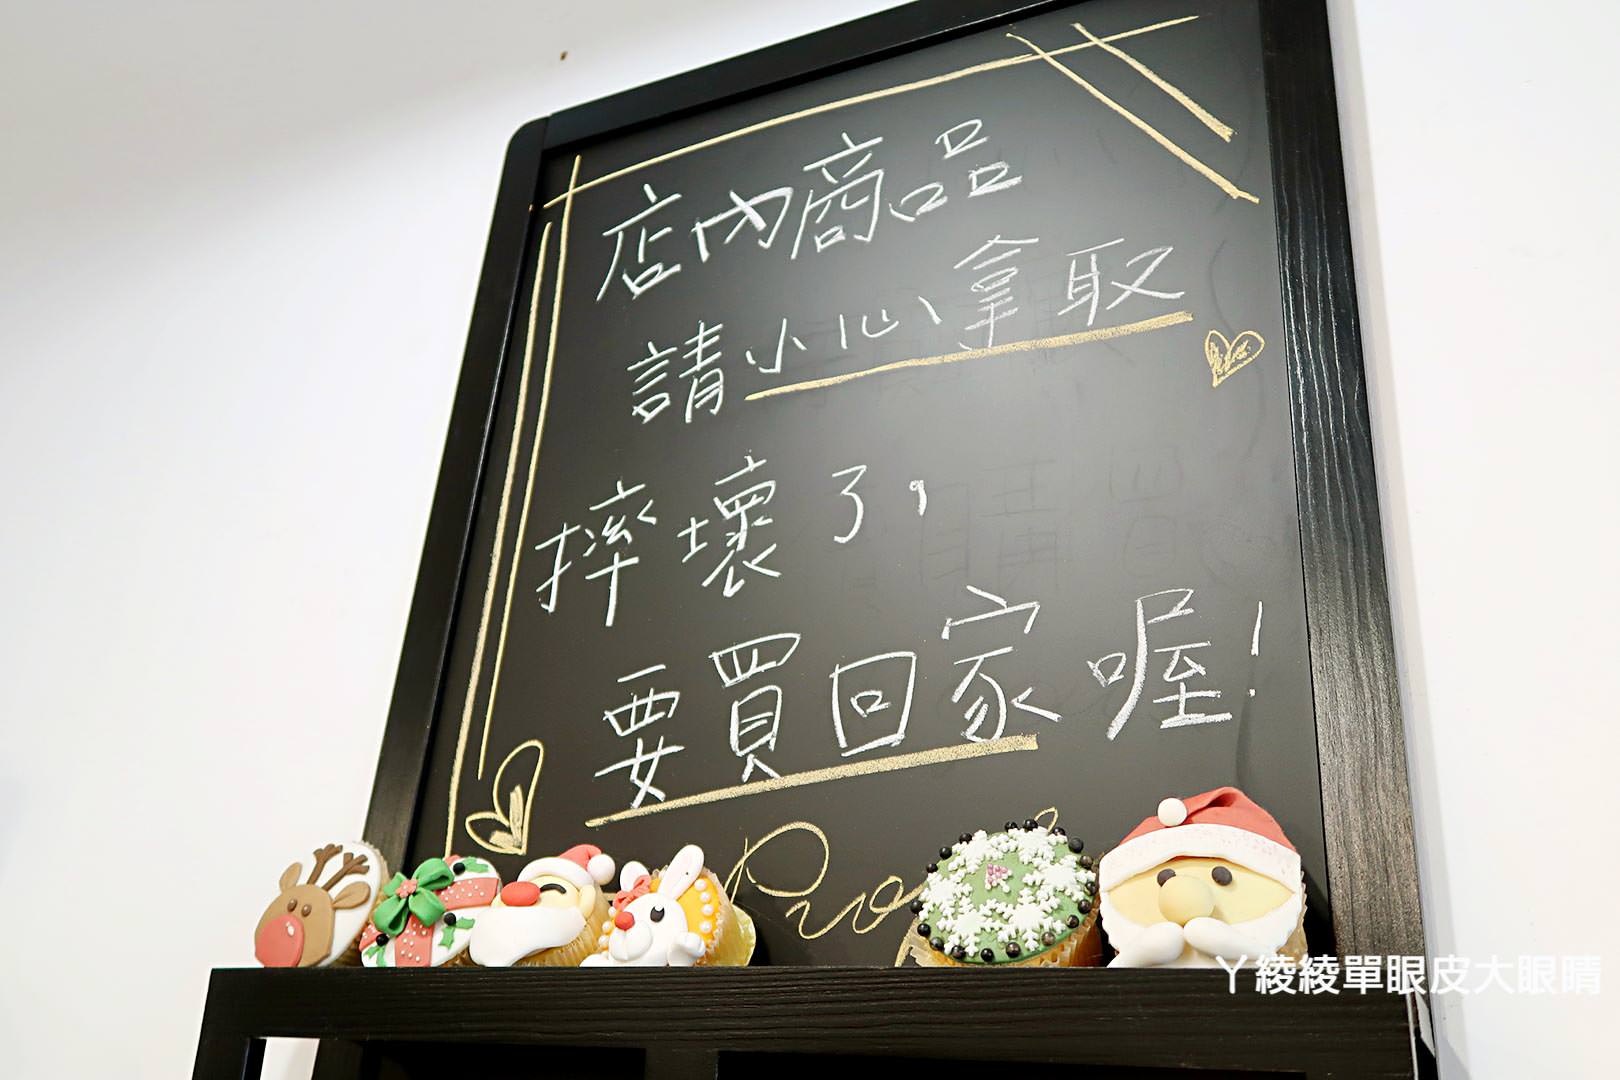 店內商品
請小心拿取
摔壞了，
要買回家喔！
ㄚ綾綾單眼皮大眼睛